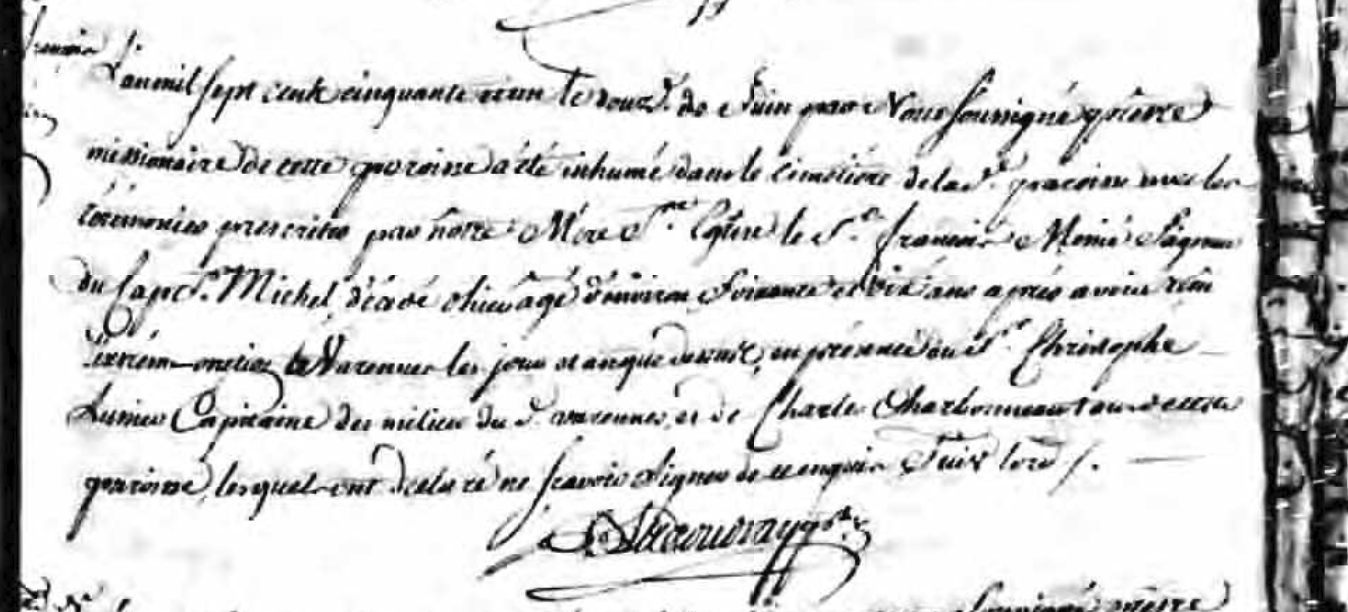 françois
L'an mil sept cents cinquante et un le douze de Juin par Nous soussigné prêtre
missionaire de cette paroisse a été inhumé dans le cimetière de la de. paroisse avec les
cérémonies prescrites par notre Mere Ste. Eglise le Sr. françois Seigneur
du Cap St. Michel, décédé hier âgé d'environ Soixante et dix ans après avoir
à Varennes les jour et an que dessus, en présence du Sr. Christophe
Capitaine des milices du d. varennes, et de Charles Charbonneau tous de cette
paroisse, lesquels ont declaré ne sçavoir signer de ce enquis Suiv. l'ord /.
ptre
soussigné prêtre